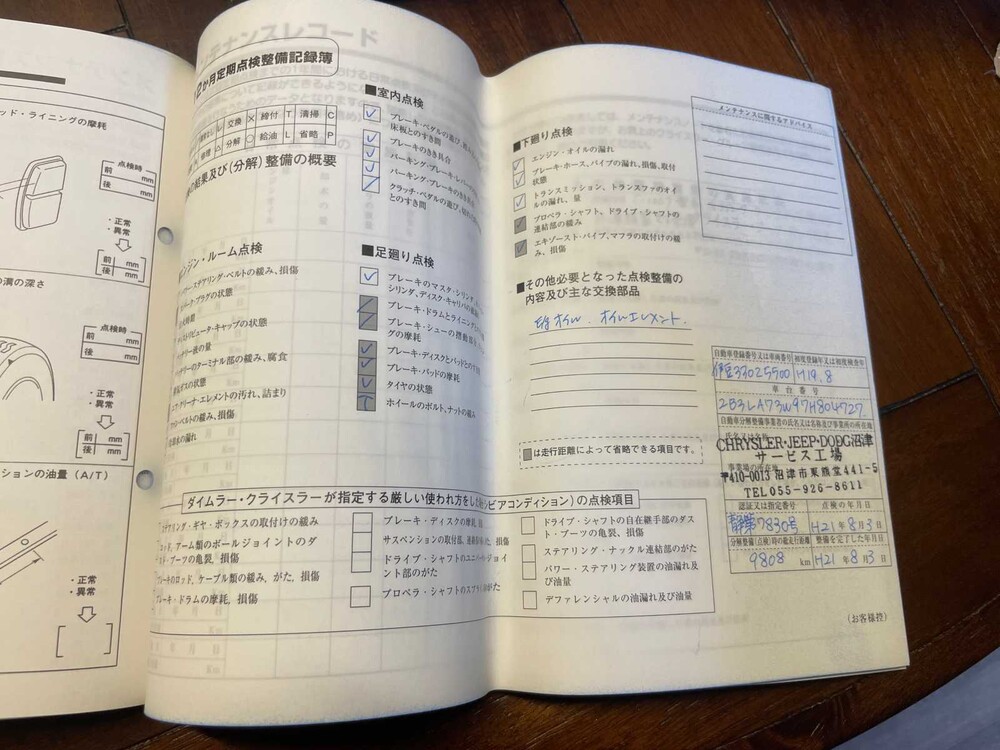 ッド・ライニングの摩耗
点検時
前 mm
後 mm
・正常
・異常
前 mm
後 mm
の溝の深さ
点検時
前
後
・正常
・異常
前 mm
後 mm
ションの油量（A/T）
・正常
・異常
テナンスレコード
12か月定期点検整備記録簿
交換 × 締付 T 清掃 C
修理 △ 分解 ○ 給油 L 省略 P
の結果及び(分解)整備の概要
ンジン・ルーム点検
ワーステアリング・ベルトの緩み、損傷
パーク・プラグの状態
ストリビュータ・キャップの状態
ッテリー液の量
ッテリーのターミナル部の緩み、腐食
ガスの状態
エア・クリーナ・エレメントの汚れ、詰まり
ベルトの緩み、損傷
水の漏れ
■室内点検
ブレーキ・ペダルの遊び、
床板とのすき間
ブレーキのきき具合
パーキング・ブレーキ・レバーの
パーキング・ブレーキの
クラッチ・ペダルの遊び、
とのすき間
■足廻り点検
ブレーキのマスタ・シリンダ、
シリンダ、ディスク・キャリパの
ブレーキ・ドラムとライニング
ブレーキ・シューの摺動部
グの摩耗
ブレーキ・ディスクとパッドとの
ブレーキ・パッドの摩耗
タイヤの状態
ホイールのボルト、ナットの緩み
■下廻り点検
エンジン・オイルの漏れ
ブレーキ・ホース、パイプの漏れ、損傷、取付
状態
トランスミッション、トランスファのオイ
ルの漏れ、量
プロペラ・シャフト、ドライブ・シャフトの
連結部の緩み
エキゾースト・パイプ、マフラの取付けの緩
み、損傷
■その他必要となった点検整備の
内容及び主な交換部品
オイル、オイルエレメント.
■は走行距離によって省略できる項目です。
メンテナンスに関するアドバイス
自動車登録番号又は車両番号 初度登録年又は初度検査年
330 25500 H19.8
車台番号
2B3LA73W97H804727
自動車分解整備事業者の氏名又は名称及び事業所の所在地
CHRYSLER・JEEP・DODG沼津
サービス工場
〒410-0013 沼津市東熊堂441-5
TEL055-926-8611
認証又は指定番号 点検の年月日
7830号 H21年8月3日
分解整備(点検)時の総走行距離 整備を完了した年月日
9808 km H21年8月3日
ダイムラー・クライスラーが指定する厳しい使われ方をした(シビアコンディション)の点検項目
ステアリング・ギヤ・ボックスの取付けの緩み
ロッド、アーム類のボールジョイントのダ
スト・ブーツの亀裂、損傷
ブレーキのロッド、ケーブル類の緩み、がた、損傷
ブレーキ・ドラムの摩耗、損傷
ブレーキ・ディスクの摩耗、損
サスペンションの取付部、連結部の緩み、損傷
ドライブ・シャフトのユニバーサルジョイ
ント部のがた
プロペラ・シャフトのスプライン部のがた
ドライブ・シャフトの自在継手部のダス
ト・ブーツの亀裂、損傷
ステアリング・ナックル連結部のがた
パワー・ステアリング装置の油漏れ及
び油量
デファレンシャルの油漏れ及び油量
（お客様控）